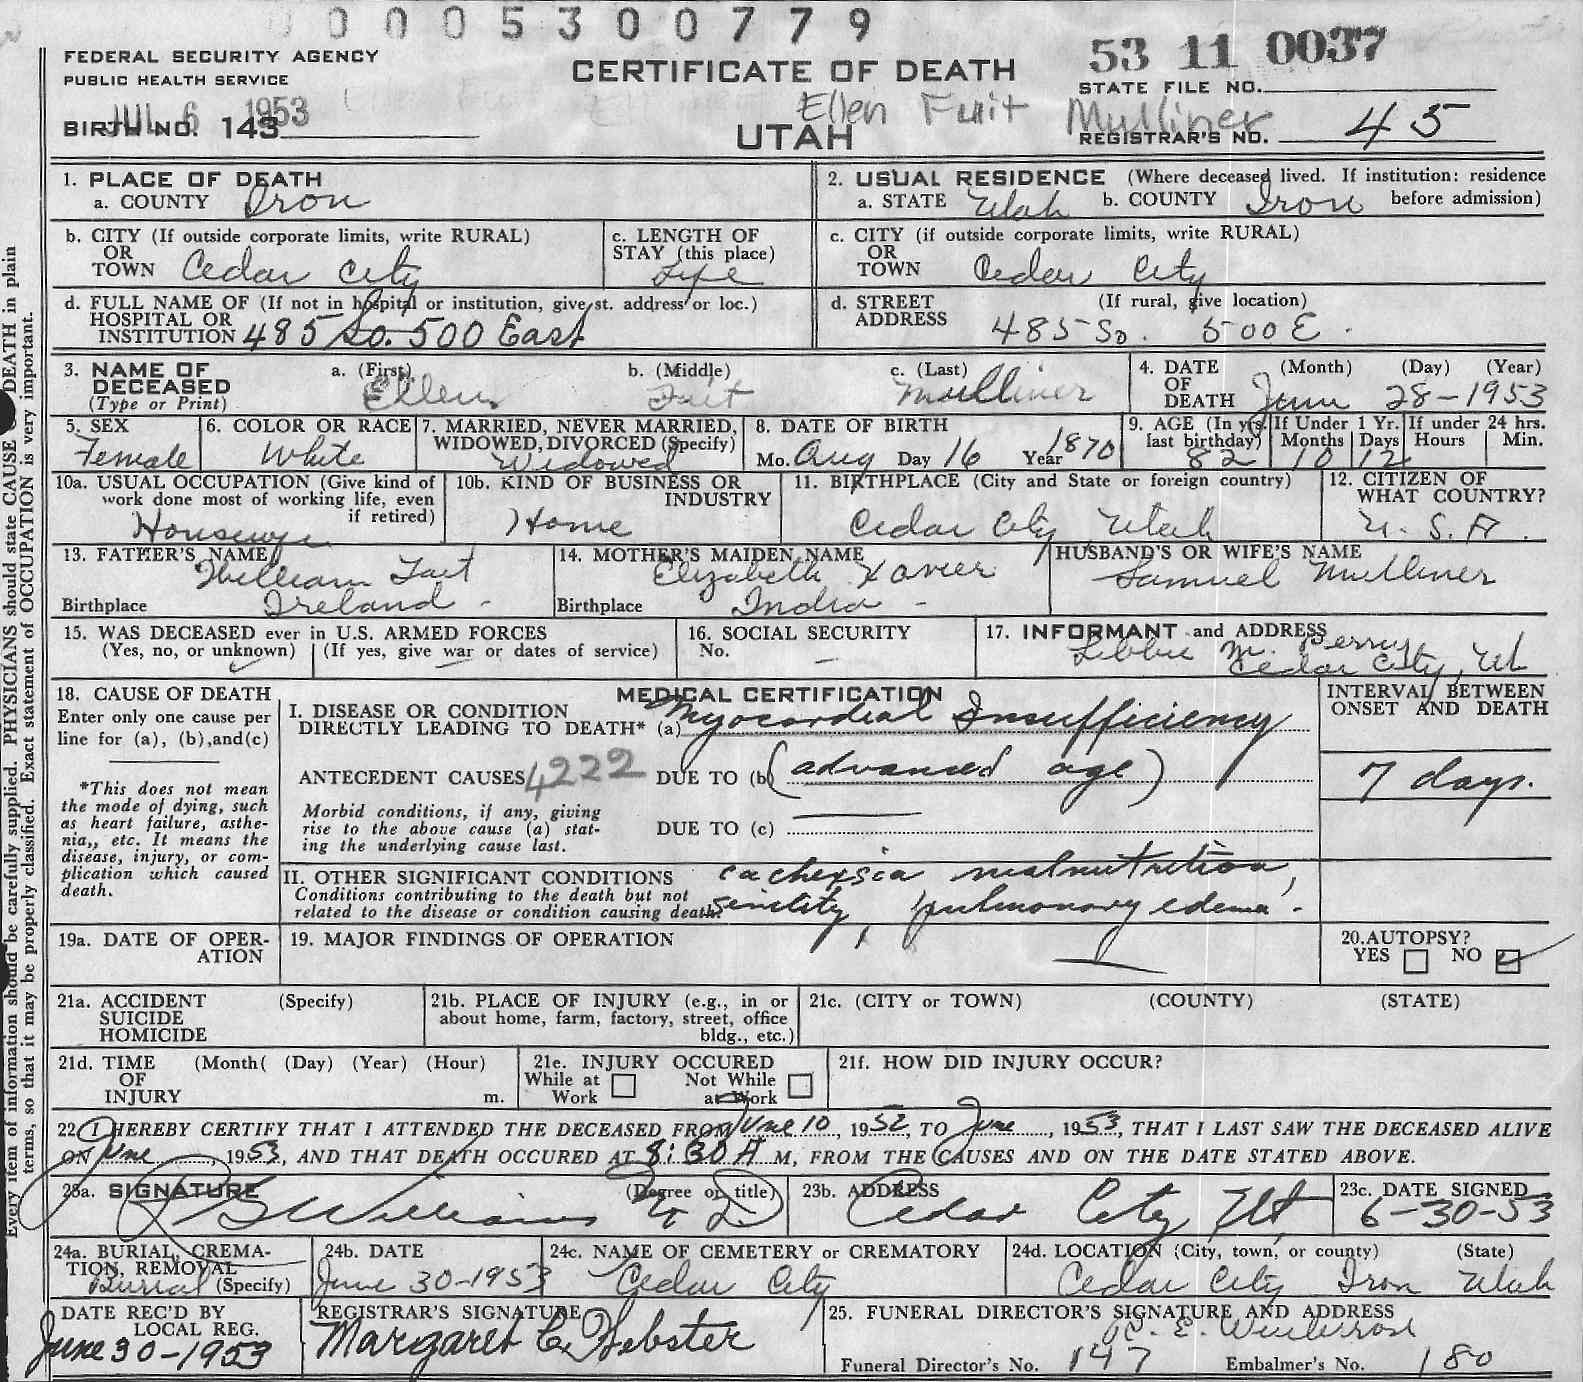 0 0 0 5 3 0 0 7 7 9
FEDERAL SECURITY AGENCY
PUBLIC HEALTH SERVICE
CERTIFICATE OF DEATH
53 11 0037
STATE FILE NO.
JUL 6 1953
BIRTH NO. 143
Ellen Mulliner
UTAH
REGISTRAR'S NO. 45
1. PLACE OF DEATH
a. COUNTY Iron
2. USUAL RESIDENCE (Where deceased lived. If institution: residence
a. STATE Utah b. COUNTY Iron before admission)
b. CITY (If outside corporate limits, write RURAL)
OR
TOWN Cedar City
c. LENGTH OF
STAY (this place)
Life
c. CITY (if outside corporate limits, write RURAL)
OR
TOWN Cedar City
d. FULL NAME OF (If not in hospital or institution, give st. address or loc.)
HOSPITAL OR
INSTITUTION 485 So. 500 East
d. STREET (If rural, give location)
ADDRESS 485 So. 500 E.
3. NAME OF DECEASED
(Type or Print)
a. (First) b. (Middle) c. (Last)
Ellen Tait Mulliner
4. DATE OF DEATH (Month) (Day) (Year)
June 28-1953
5. SEX
Female
6. COLOR OR RACE
White
7. MARRIED, NEVER MARRIED,
WIDOWED, DIVORCED (Specify)
Widowed
8. DATE OF BIRTH
Mo. Aug Day 16 Year 1870
9. AGE (In yrs. last birthday) 82
If Under 1 Yr. Months 10 Days 12
If under 24 hrs. Hours Min.
10a. USUAL OCCUPATION (Give kind of
work done most of working life, even
if retired)
Housewife
10b. KIND OF BUSINESS OR
INDUSTRY
Home
11. BIRTHPLACE (City and State or foreign country)
Cedar City Utah
12. CITIZEN OF
WHAT COUNTRY?
U. S. A.
13. FATHER'S NAME
William Tait
Birthplace Ireland -
14. MOTHER'S MAIDEN NAME
Elizabeth Xavier
Birthplace India -
HUSBAND'S OR WIFE'S NAME
Samuel Mulliner
15. WAS DECEASED ever in U.S. ARMED FORCES
(Yes, no, or unknown) (If yes, give war or dates of service)
16. SOCIAL SECURITY
No. -
17. INFORMANT and ADDRESS
Libbie M. Perry
Cedar City, Ut
18. CAUSE OF DEATH
Enter only one cause per
line for (a), (b), and (c)
*This does not mean
the mode of dying, such
as heart failure, asthe-
nia,, etc. It means the
disease, injury, or com-
plication which caused
death.
MEDICAL CERTIFICATION
I. DISEASE OR CONDITION
DIRECTLY LEADING TO DEATH* (a) Myocardial Insufficiency
ANTECEDENT CAUSES 4222 DUE TO (b) (advanced age)
Morbid conditions, if any, giving
rise to the above cause (a) stat-
ing the underlying cause last.
DUE TO (c)
II. OTHER SIGNIFICANT CONDITIONS
Conditions contributing to the death but not
related to the disease or condition causing death.
cachexia malnutrition,
senility, pulmonary edema.
INTERVAL BETWEEN
ONSET AND DEATH
7 days.
19a. DATE OF OPER-
ATION
19. MAJOR FINDINGS OF OPERATION
20. AUTOPSY?
YES NO
21a. ACCIDENT (Specify)
SUICIDE
HOMICIDE
21b. PLACE OF INJURY (e.g., in or
about home, farm, factory, street, office
bldg., etc.)
21c. (CITY or TOWN) (COUNTY) (STATE)
21d. TIME (Month( (Day) (Year) (Hour)
OF
INJURY m.
21e. INJURY OCCURED
While at Work Not While at Work
21f. HOW DID INJURY OCCUR?
22. I HEREBY CERTIFY THAT I ATTENDED THE DECEASED FROM June 10, 1952, TO June, 1953, THAT I LAST SAW THE DECEASED ALIVE
ON June, 1953, AND THAT DEATH OCCURED AT 8:30 A M, FROM THE CAUSES AND ON THE DATE STATED ABOVE.
23a. SIGNATURE (Degree or title)
Williams M D
23b. ADDRESS
Cedar City Ut
23c. DATE SIGNED
6-30-53
24a. BURIAL, CREMA-
TION, REMOVAL
Burial (Specify)
24b. DATE
June 30-1953
24c. NAME OF CEMETERY or CREMATORY
Cedar City
24d. LOCATION (City, town, or county) (State)
Cedar City Iron Utah
DATE REC'D BY
LOCAL REG.
June 30-1953
REGISTRAR'S SIGNATURE
Margaret C. Webster
25. FUNERAL DIRECTOR'S SIGNATURE AND ADDRESS
Funeral Director's No. 147 Embalmer's No. 180
Every item of information should be carefully supplied. PHYSICIANS should state CAUSE OF DEATH in plain
terms, so that it may be properly classified. Exact statement of OCCUPATION is very important.